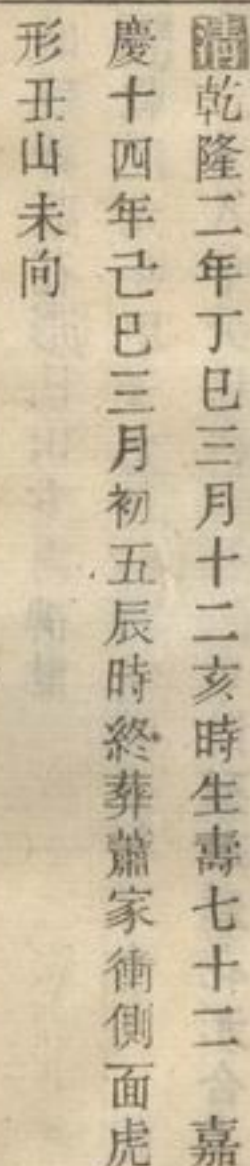 清乾隆二年丁巳三月十二亥時生壽七十二 嘉
慶十四年己巳三月初五辰時終葬蕭家衝側面虎
形丑山未向